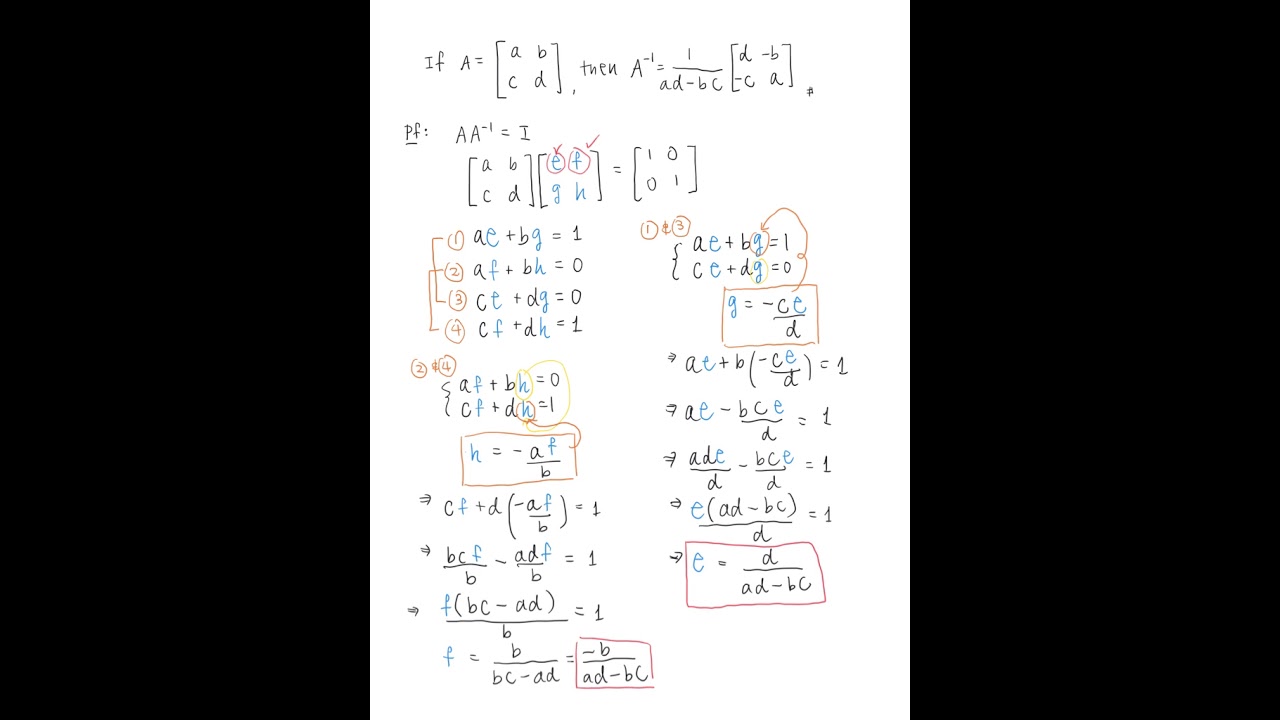 If A = [a b; c d], then A⁻¹ = 1/(ad-bc) [d -b; -c a] #
Pf: AA⁻¹ = I
[a b; c d][e f; g h] = [1 0; 0 1]
① ae + bg = 1
② af + bh = 0
③ ce + dg = 0
④ cf + dh = 1
② & ④
{ af + bh = 0
{ cf + dh = 1
h = - af/b
⇒ cf + d(-af/b) = 1
⇒ bcf/b - adf/b = 1
⇒ f(bc - ad)/b = 1
f = b/(bc-ad) = -b/(ad-bc)
① & ③
{ ae + bg = 1
{ ce + dg = 0
g = - ce/d
⇒ ae + b(-ce/d) = 1
⇒ ae - bce/d = 1
⇒ ade/d - bce/d = 1
⇒ e(ad - bc)/d = 1
⇒ e = d/(ad-bc)